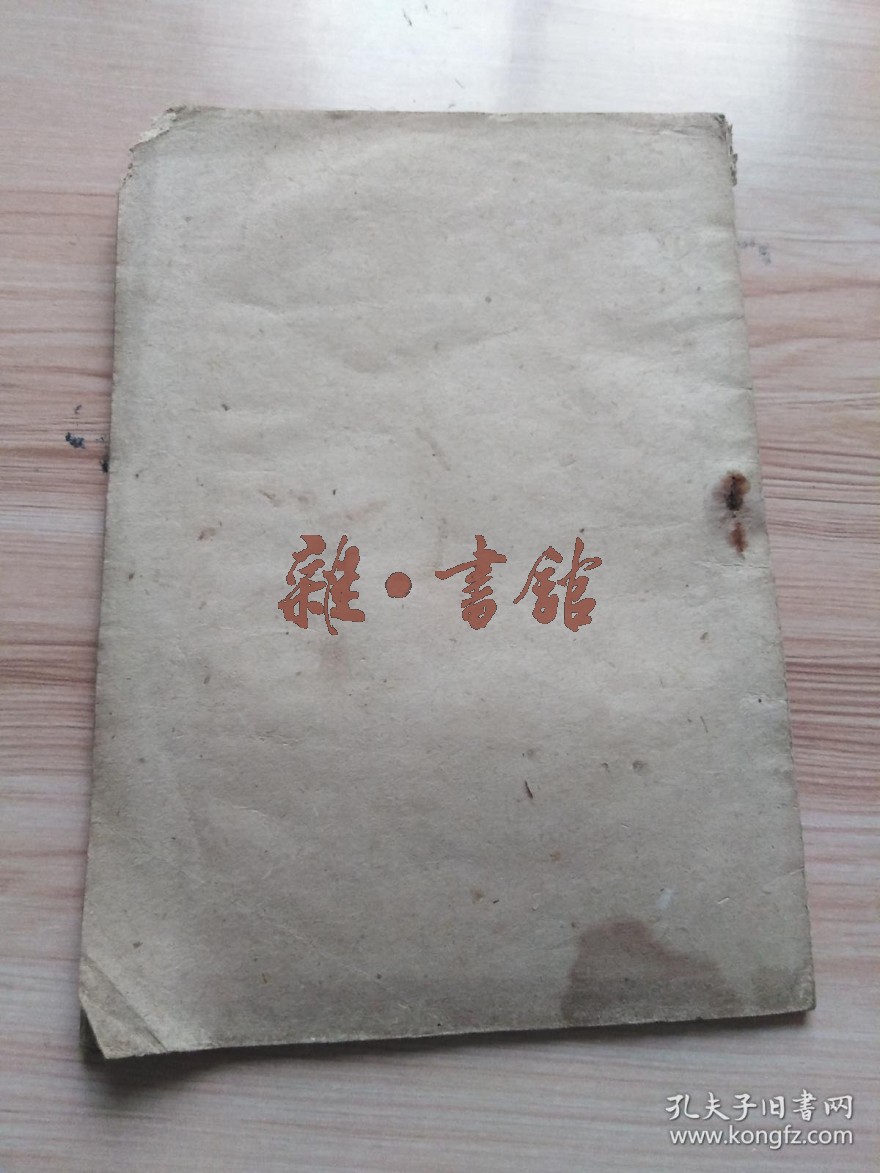 雜·書館
孔夫子旧书网
www.kongfz.com